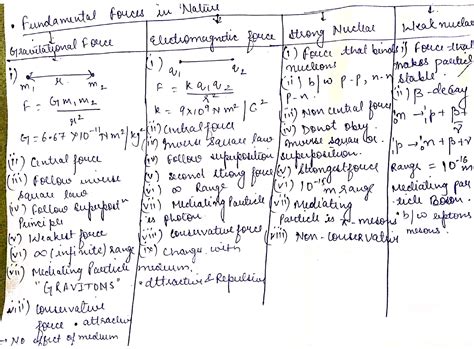 • Fundamental Forces in Nature
Gravitational Force
i)
m1 r m2
F = G m1 m2
r²
G = 6.67 × 10⁻¹¹ N m²/kg²
(ii) Central force
(iii) Follow inverse
square law
(iv) Follow superpostn
Principle
(v) Weakest force
(vi) ∞ (infinite) range
(vii) Mediating Particle
"GRAVITONS"
viii) conservative
force • attractive
→ No effect of medium
Electromagnetic force
(i)
q1 q2
F = k q1 q2
r²
k = 9×10⁹ N m²/C²
(ii) Central force
(iii) Inverse square law
(iv) Follow superposition
(v) Second strong force
(vi) ∞ Range
(vii) Mediating Particle
is photon
(viii) conservative force
(ix) Change with
medium.
• Attractive & Repulsive
Strong Nuclear
(i) Force that binds
nucleons
(ii) b/w p-p, n-n
p-n.
(iii) Non central force
(iv) Do not obey
inverse square or
superposition.
(v) strongest force
(vi) 10⁻¹⁵ m range
(vii) Mediating
Particle is π-mesons
(viii) Non-conservative
Weak nuclear
i) Force that
makes particle
stable
(ii) β-decay
Range = 10⁻¹⁶ m
Mediating par-
ticle Boson.
• b/w leptons
mesons.